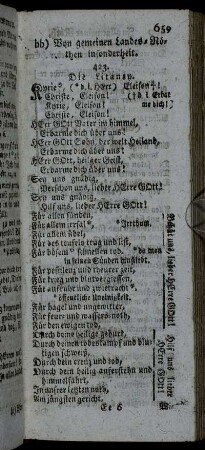 659
bb) Von gemeinen Landes-Nö-
then insonderheit.
423.
Die Litaney.
Kyrie*, (* d. i. HErr) Eleison†!
Christe, Eleison! (†d. i. Erbar-
Kyrie, Eleison! me dich!)
Christe, Eleison!
HErr GOtt Vater im himmel,
Erbarme dich über uns!
HErr GOtt Sohn, der welt Heiland,
Erbarme dich über uns!
HErr GOtt, heilger Geist,
Erbarme dich über uns!
Sey uns gnädig,
Verschon uns, lieber HErre GOtt!
Sey uns gnädig,
Hilf uns, lieber HErre GOtt!
Für allen sünden,
Für allem irrsal*, *Irrthum.
Für allem übel,
Für des teufels trug und list,
Für bösem* schnellen tod, *da man
in seinen Sünden
Für pestilenz und theurer zeit,
Für krieg und blutvergiessen,
Für aufruhr und zwietracht*
*öffentliche
Für hagel und ungewitter,
Für feuer- und wassers-noth,
Für den ewigen tod,
Durch deine heilige geburt,
Durch deinen todeskampf und blu-
tigen schweiß,
Durch dein creuz und tod,
Durch dein heilig auferstehn und
himmelfahrt,
In unsrer letzten noth,
Am jüngsten gericht,
Behüt uns, lieber HErre GOtt!
Hilf uns, lieber
HErre GOtt!